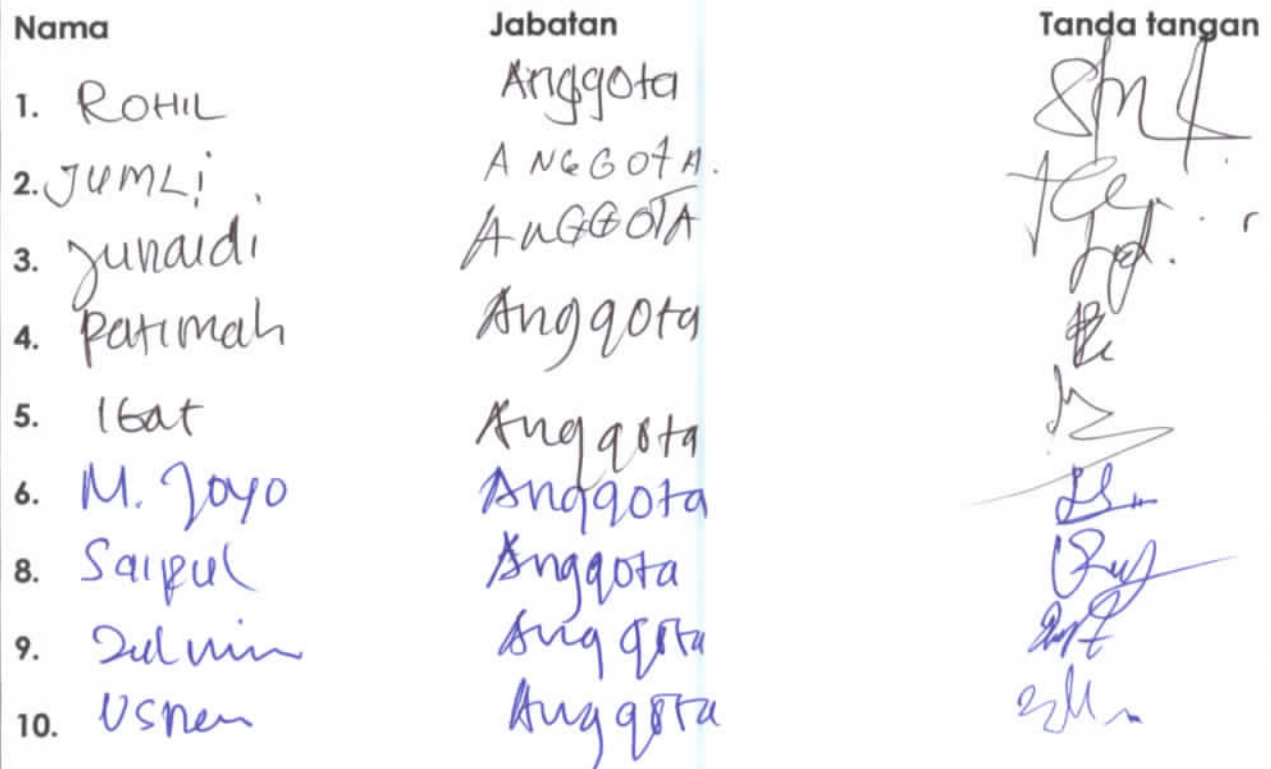 Nama Jabatan Tanda tangan
1. ROHIL Anggota
2. JUMLi ANGGOTA.
3. Junaidi ANGGOTA
4. Patimah Anggota
5. Anggota
6. M. Joyo Anggota
8. Saipul Anggota
9. Anggota
10. Anggota